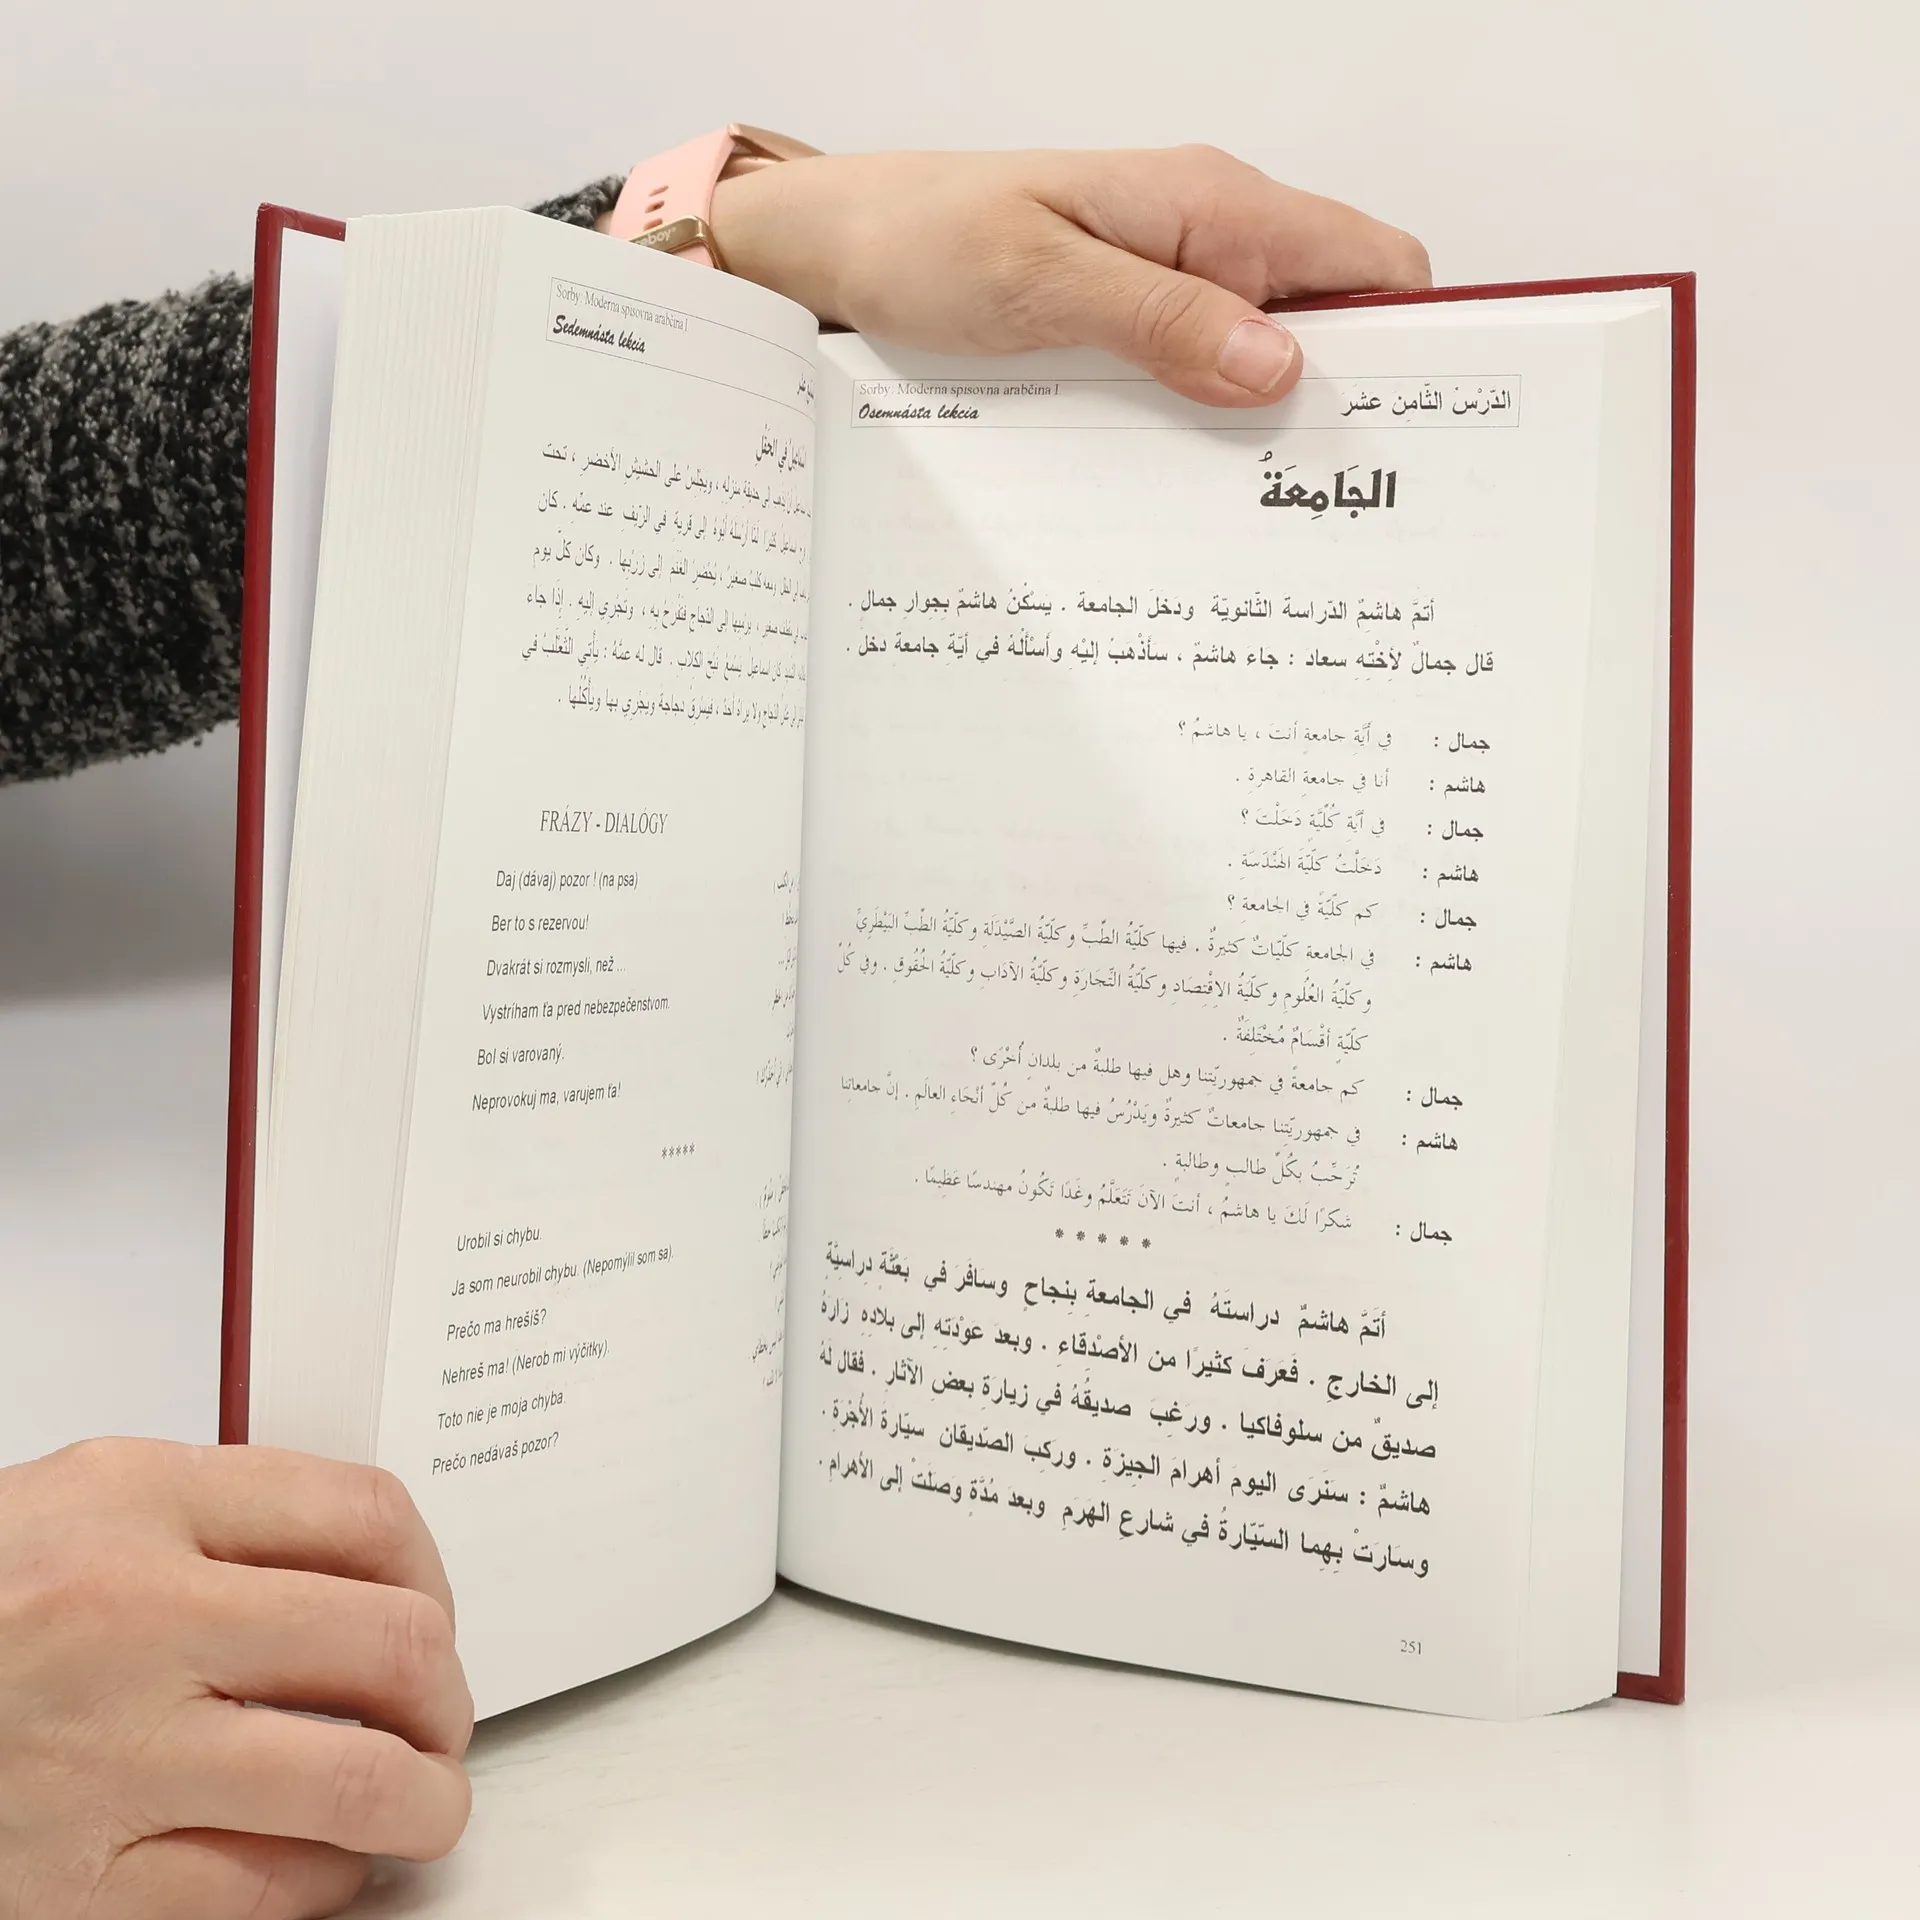 Sorby: Moderna spisovna arabčina I
Sedemnásta lekcia
في الحَقْلِ
إلى حديقة منزله ، ويجلِسُ على الحشيشِ الأخضرِ ، تحت
أبُوهُ إلى قريةٍ في الرّيفِ عند عمّهِ . كان
ومعه كلبٌ صغيرٌ ، يُحْضِرُ الغَنَمَ إلى زَرْبِها . وكان كلّ يومٍ
إلى الدّجاج فَتَفْرَحُ بِهِ ، وتَجْرِي إليهِ . إذا جاء
كان اسماعيلُ يَسْمَعُ نَبْحَ الكلابِ . قال له عمُّهُ : يأتي الثَّعْلَبُ في
ولا يراهُ أحدٌ ، فيسرِقُ دجاجةً ويجْرِي بها ويأْكُلُها .
FRÁZY - DIALÓGY
Daj (dávaj) pozor ! (na psa)
Ber to s rezervou!
Dvakrát si rozmysli, než ...
Vystríham ťa pred nebezpečenstvom.
Bol si varovaný.
Neprovokuj ma, varujem ťa!
*****
Urobil si chybu.
Ja som neurobil chybu. (Nepomýlil som sa).
Prečo ma hrešíš?
Nehreš ma! (Nerob mi výčitky).
Toto nie je moja chyba.
Prečo nedávaš pozor?
Sorby: Moderna spisovna arabčina I.
Osemnásta lekcia
الدّرْسُ الثّامِن عشَر
الجَامِعَةُ
أتمَّ هاشِمٌ الدّراسة الثّانويّة ودَخَلَ الجامعة . يَسْكُنُ هاشمٌ بِجِوارِ جمالٍ .
قال جمالٌ لأخْتِهِ سعاد : جاءَ هاشمٌ ، سأَذْهَبُ إليْهِ وأسْأَلُهُ في أيّةِ جامعةٍ دخلَ .
جمال : في أيَّةِ جامعةٍ أنتَ ، يا هاشمُ ؟
هاشم : أنا في جامعةِ القاهرةِ .
جمال : في أيَّةِ كُلّيّةٍ دَخَلْتَ ؟
هاشم : دَخَلْتُ كلّيّةَ الهَنْدَسَةِ .
جمال : كم كلّيّةً في الجامعةِ ؟
هاشم : في الجامعة كلّيّاتٌ كثيرةٌ . فيها كلّيّةُ الطّبِّ وكلّيّةُ الصَّيْدَلَةِ وكلّيّةُ الطّبِّ البَيْطَرِيِّ
وكلّيّةُ العُلُومِ وكلّيّةُ الاِقْتِصَادِ وكلّيّةُ التّجَارَةِ وكلّيّةُ الآدَابِ وكلّيّةُ الحُقُوقِ . وفي كُلِّ
كلّيّةٍ أقْسَامٌ مُخْتَلِفَةٌ .
جمال : كم جامعةً في جمهوريّتِنا وهل فيها طلبةٌ من بلدانٍ أُخْرَى ؟
هاشم : في جمهوريّتِنا جامعاتٌ كثيرةٌ ويَدْرُسُ فيها طلبةٌ من كُلِّ أنْحَاءِ العالَمِ . إنَّ جامعاتِنا
تُرَحِّبُ بكُلِّ طالبٍ وطالبةٍ .
جمال : شكرًا لَكَ يا هاشمُ ، أنتَ الآنَ تَتَعَلَّمُ وغَدًا تَكُونُ مهندسًا عَظِيمًا .
* * * * *
أتَمَّ هاشمٌ دراستَهُ في الجامعةِ بِنجاحٍ وسَافَرَ في بَعْثَةٍ دِراسِيَّةٍ
إلى الخارجِ . فَعَرَفَ كثيرًا من الأصْدقاءِ . وبعدَ عوْدَتِهِ إلى بلادِهِ زارَهُ
صديقٌ من سلوفاكيا . ورَغِبَ صديقُهُ في زيارَةِ بعضِ الآثارِ . فقال لهُ
هاشمٌ : سَنَرَى اليومَ أهرامَ الجِيزَةِ . ورَكِبَ الصّديقان سيّارةَ الأُجْرَةِ .
وسارَتْ بِهِما السّيّارةُ في شارعِ الهَرَمِ وبعدَ مُدَّةٍ وصَلَتْ إلى الأهرامِ .
251